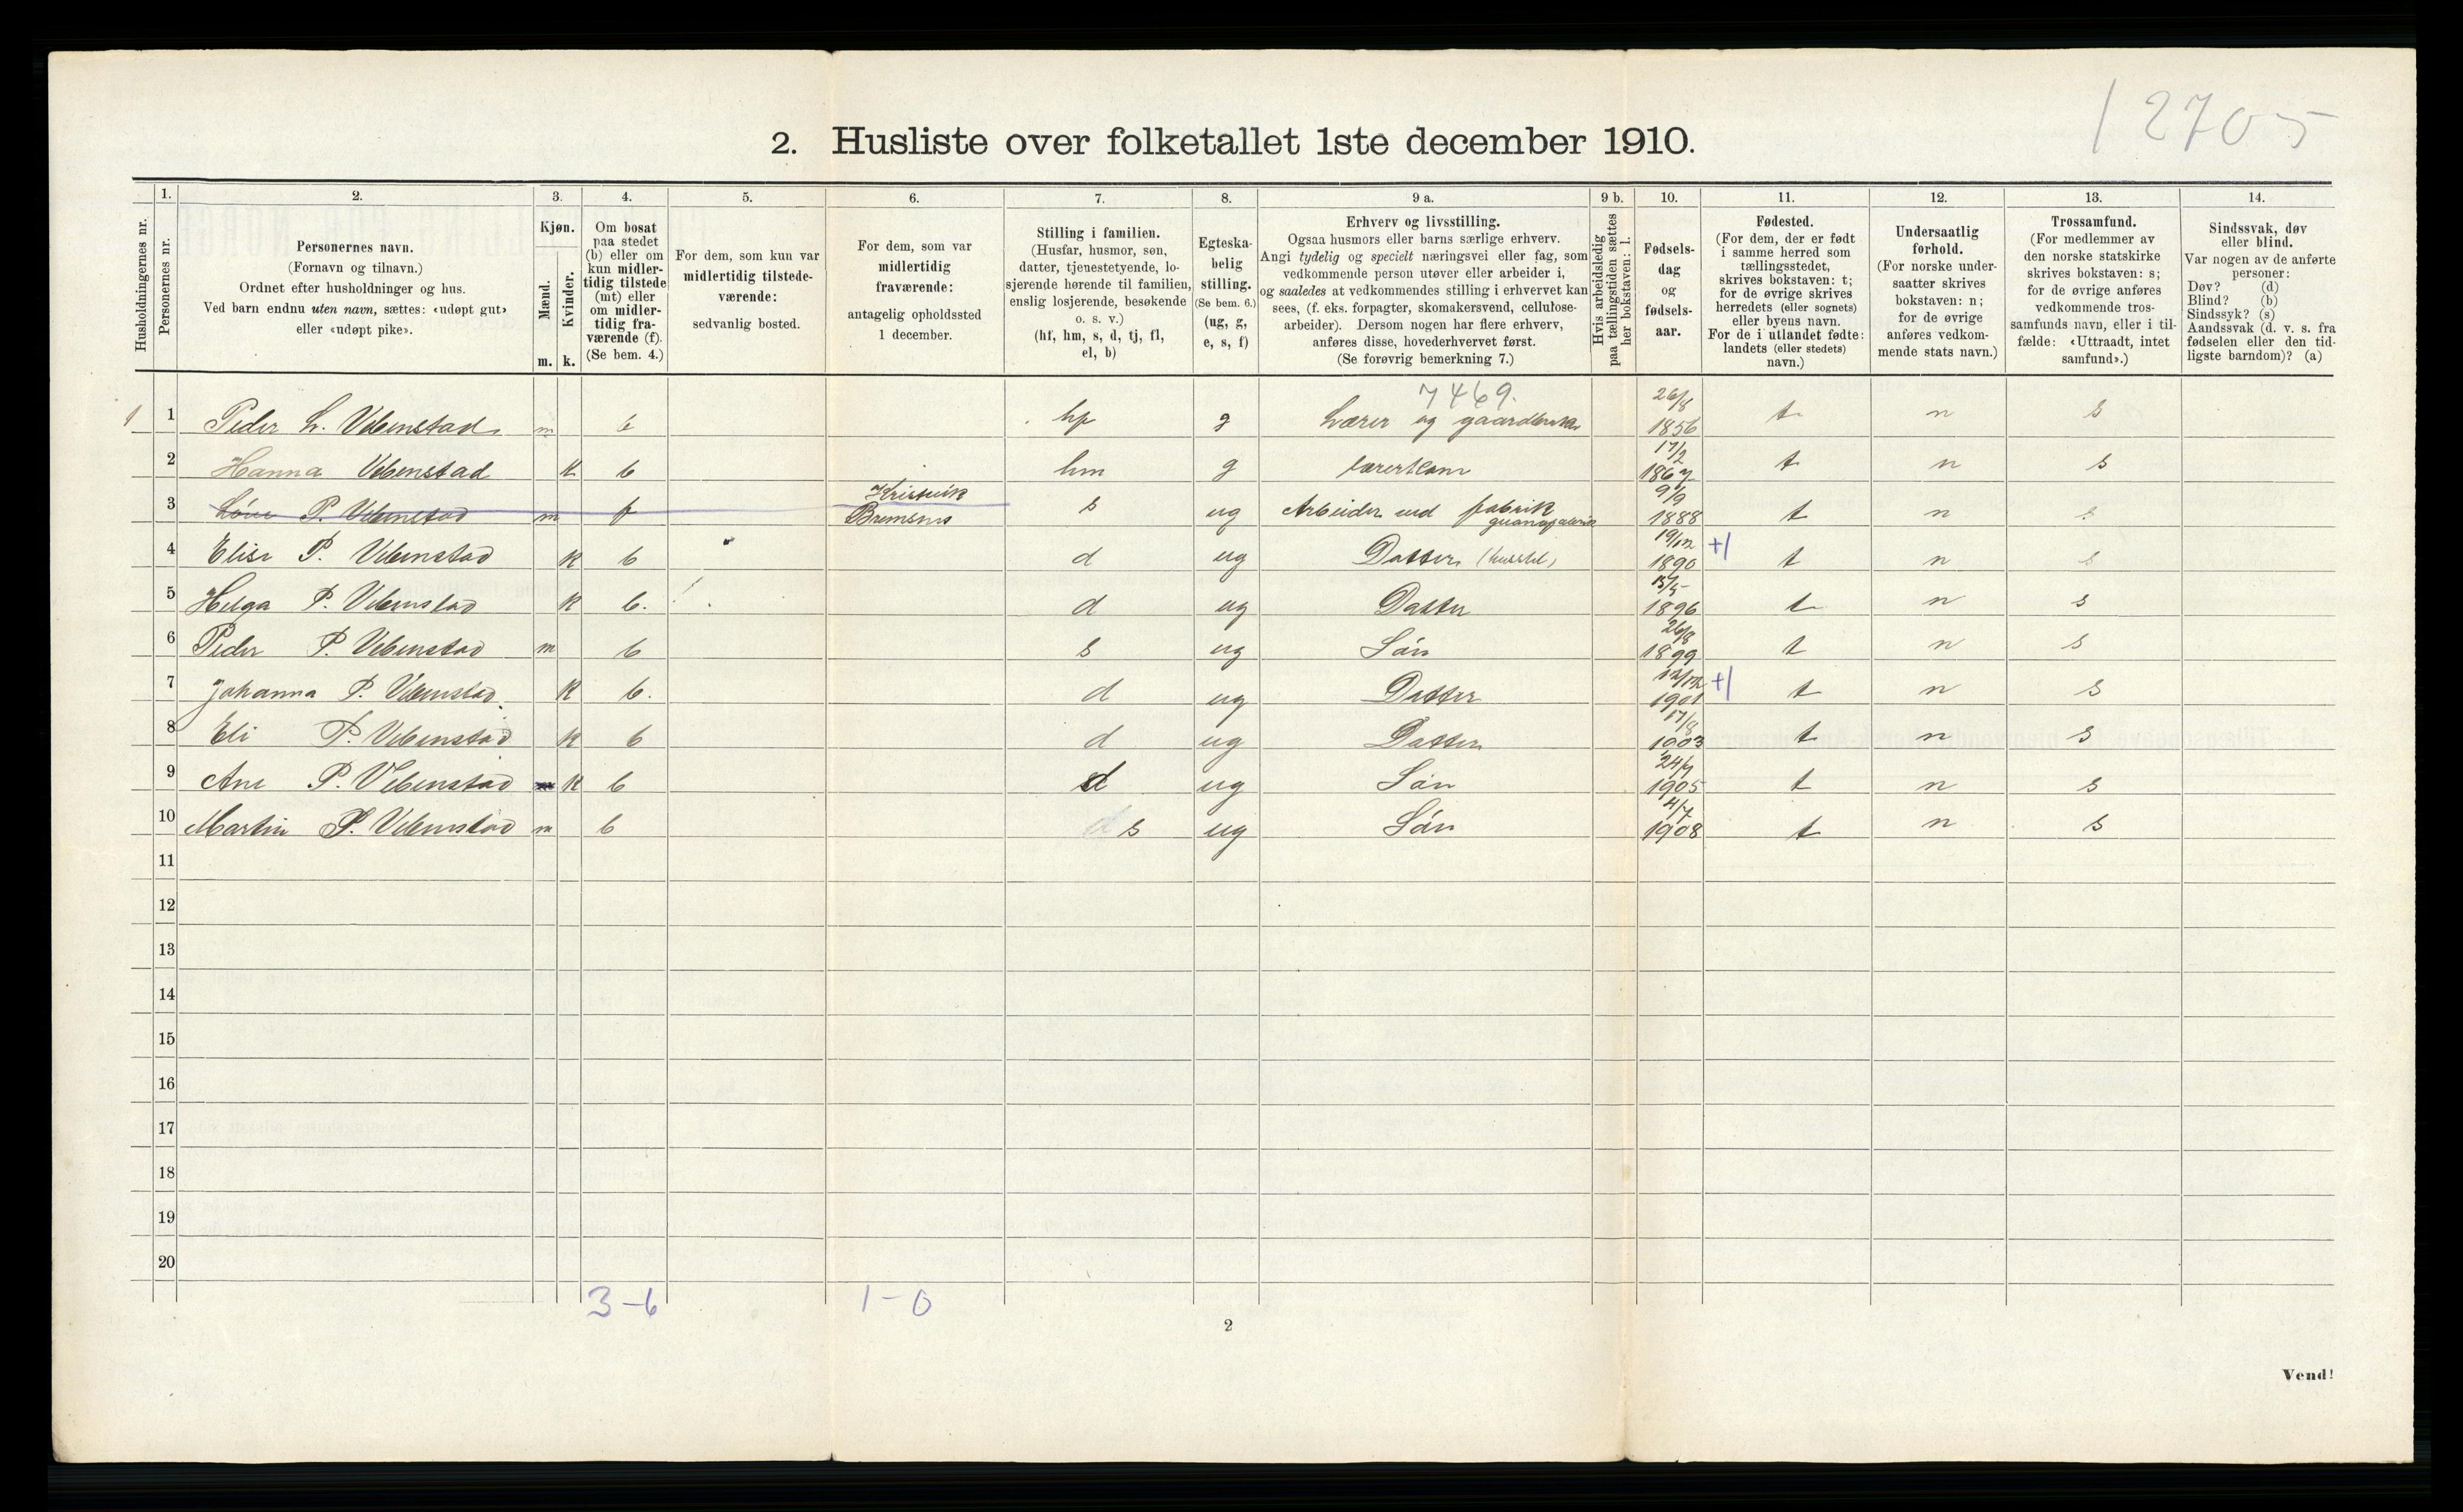 12705
2. Husliste over folketallet 1ste december 1910.
Husholdningernes nr.
1.
Personernes nr.
2.
Personernes navn.
(Fornavn og tilnavn.)
Ordnet efter husholdninger og hus.
Ved barn endnu uten navn, sættes: «udøpt gut»
eller «udøpt pike».
3.
Kjøn.
Mænd.
Kvinder.
m. k.
4.
Om bosat
paa stedet
(b) eller om
kun midler-
tidig tilstede
(mt) eller
om midler-
tidig fra-
værende (f).
(Se bem. 4.)
5.
For dem, som kun var
midlertidig tilstede-
værende:
sedvanlig bosted.
6.
For dem, som var
midlertidig
fraværende:
antagelig opholdssted
1 december.
7.
Stilling i familien.
(Husfar, husmor, søn,
datter, tjenestetyende, lo-
sjerende hørende til familien,
enslig losjerende, besøkende
o. s. v.)
(hf, hm, s, d, tj, fl,
el, b)
8.
Egteska-
belig
stilling.
(Se bem. 6.)
(ug, g,
e, s, f)
9 a.
Erhverv og livsstilling.
Ogsaa husmors eller barns særlige erhverv.
Angi tydelig og specielt næringsvei eller fag, som
vedkommende person utøver eller arbeider i,
og saaledes at vedkommendes stilling i erhvervet kan
sees, (f. eks. forpagter, skomakersvend, cellulose-
arbeider). Dersom nogen har flere erhverv,
anføres disse, hovederhvervet først.
(Se forøvrig bemerkning 7.)
9 b.
Hvis arbeidsledig
paa tællingstiden sættes
her bokstaven: l.
10.
Fødsels-
dag
og
fødsels-
aar.
11.
Fødested.
(For dem, der er født
i samme herred som
tællingsstedet,
skrives bokstaven: t;
for de øvrige skrives
herredets (eller sognets)
eller byens navn.
For de i utlandet fødte:
landets (eller stedets)
navn.)
12.
Undersaatlig
forhold.
(For norske under-
saatter skrives
bokstaven: n;
for de øvrige
anføres vedkom-
mende stats navn.)
13.
Trossamfund.
(For medlemmer av
den norske statskirke
skrives bokstaven: s;
for de øvrige anføres
vedkommende tros-
samfunds navn, eller i til-
fælde: «Uttraadt, intet
samfund».)
14.
Sindssvak, døv
eller blind.
Var nogen av de anførte
personer:
Døv? (d)
Blind? (b)
Sindssyk? (s)
Aandssvak (d. v. s. fra
fødselen eller den tid-
ligste barndom)? (a)
7469.
1 1 Peder L. Vebenstad m b hf g Lærer og gaardbruker 26/8 1856 t n s
2 Hanna Vebenstad k b hm g lærerkone 17/2 1867 t n s
3 P. Vebenstad m f Kristvik Bremsnes s ug Arbeider ved fabrik guanofabrik 9/9 1888 t n s
4 Elise P. Vebenstad k b d ug Datter (husstel) 19/12 1890 +1 t n s
5 Helga P. Vebenstad k b. d ug Datter 15/5 1896 t n s
6 Peder P. Vebenstad m b s ug Søn 26/8 1899 t n s
7 Johanna P. Vebenstad k b. d ug Datter 12/12 1901 +1 t n s
8 Eli P. Vebenstad k b d ug Datter 17/8 1903 t n s
9 Ane P. Vebenstad k b d ug Søn 24/7 1905 t n s
10 Martin P. Vebenstad m b s ug Søn 4/7 1908 t n s
11
12
13
14
15
16
17
18
19
20
3-6 1-0
2
Vend!